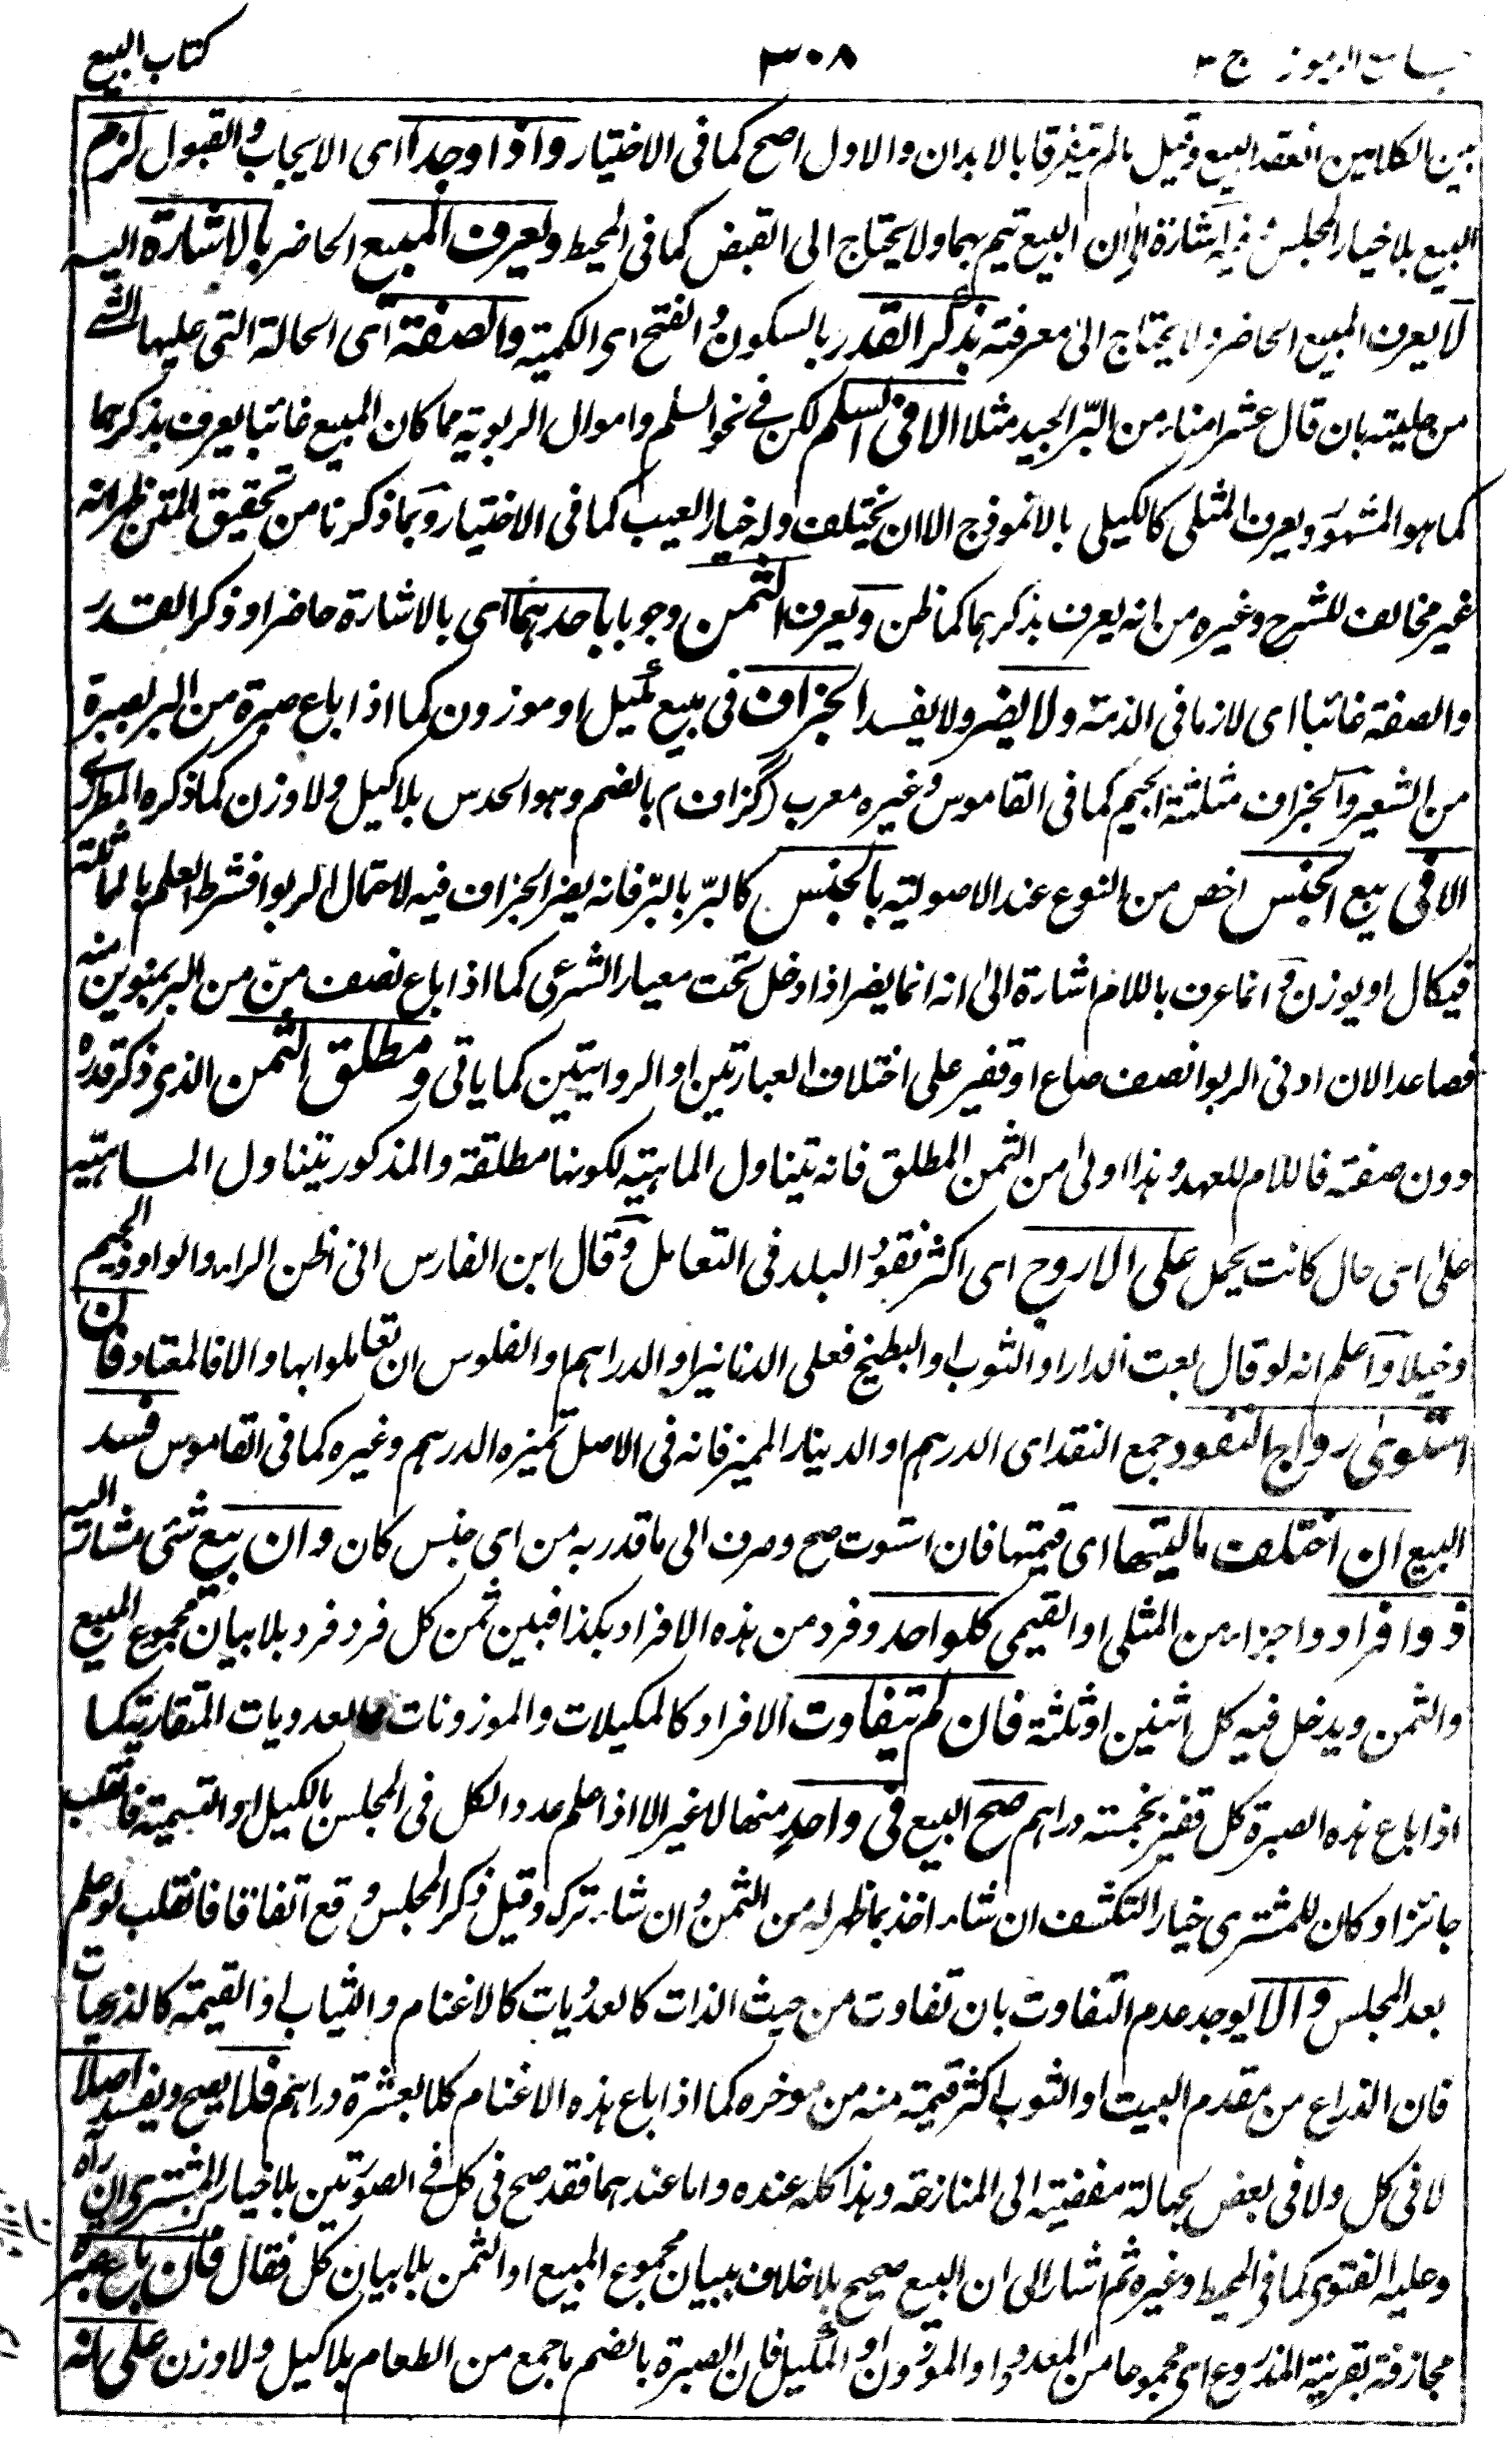 جامع الرموز ج ٣ ٣٠٨ كتاب البيع
بين الكلامين انعقد البيع وقيل مالم يتفرقا بالابدان والاول اصح كما فى الاختيار واذا وجدا اى الايجاب والقبول لزم
البيع بلا خيار المجلس وفيه اشارة الى ان البيع يتم بهما ولا يحتاج الى القبض كما فى المحيط ويعرف المبيع الحاضر بالاشارة اليه
لا يعرف المبيع الحاضر ولا يحتاج الى معرفته بذكر القدر بالسكون والفتح اى الكمية والصفة اى الحالة التى عليها الشئ
من حليته بان قال عشر امناء من البرّ الجيد مثلا الا فى السلم لكن فى نحو السلم واموال الربوية مما كان المبيع غائبا يعرف بذكرهما
كما هو المشهور ويعرف المثلى كالكيلى بالانموذج الا ان يختلف وله خيار العيب كما فى الاختيار وبما ذكرنا من تحقيق المتن ظهر انه
غير مخالف للشرح وغيره من انه يعرف بذكرهما كما ظن ويعرف الثمن وجوبا باحدهما اى بالاشارة حاضرا وذكر القدر
والصفة غائبا اى لازما فى الذمة ولا يضر ولا يفسد الجزاف فى بيع مكيل او موزون كما اذا باع صبرة من البر بصبرة
من الشعير والجزاف مثلثة الجيم كما فى القاموس وغيره معرب (گزاف) بالضم وهو الحدس بلا كيل ولا وزن كما ذكره المطرزى
الا فى بيع الجنس اخص من النوع عند الاصولية بالجنس كالبرّ بالبرّ فانه يضر الجزاف فيه لاحتمال الربوا فشرط العلم بالمماثلة
فيكال او يوزن وانما عرف باللام اشارة الى انه انما يضر اذا دخل تحت معيار الشرعى كما اذا باع نصف منّ من البر بمنوين منه
فصاعدا لان ادنى الربوا نصف صاع او قفيز على اختلاف العبارتين او الروايتين كما ياتى ومطلق الثمن الذى ذكر قدره
دون صفته فاللام للعهد وهذا اولى من الثمن المطلق فانه يتناول الماهية لكونها مطلقة والمذكور يتناول الماهية
على اى حال كانت يحمل على الاروج اى اكثر نقود البلد فى التعامل وقال ابن الفارس انى اظن الراء والواو والجيم
دخيلا واعلم انه لو قال بعت الدار او الثوب او البطيخ فعلى الدنانير او الدراهم او الفلوس ان تعاملوا بها والا فالمعتاد فان
استوى رواج النقود جمع النقد اى الدرهم او الدينار المميز فانه فى الاصل تميزه الدرهم وغيره كما فى القاموس فسد
البيع ان اختلف ماليتها اى قيمتها فان استوت صح وصرف الى ما قدر به من اى جنس كان وان بيع شئ مشار اليه
ذو افراد واجزاء من المثلى او القيمى كلواحد وفرد من هذه الافراد بكذا فبين ثمن كل فرد فرد بلا بيان مجموع المبيع
والثمن ويدخل فيه كل اثنين او ثلثة فان لم يتفاوت الافراد كالمكيلات والموزونات والعدديات المتقاربة كما
اذا باع هذه الصبرة كل قفيز بخمسة دراهم صح البيع فى واحد منها لا غير الا اذا علم عدد الكل فى المجلس بالكيل او التسمية فانقلب
جائزا وكان للمشترى خيار التكشف ان شاء اخذ بما ظهر له من الثمن وان شاء ترك وقيل ذكر المجلس وقع اتفاقا فانقلب لو علم
بعد المجلس والا يوجد عدم التفاوت بان تفاوت من حيث الذات كالعدديات كالاغنام والثياب او القيمة كالذرعيات
فان الذراع من مقدم البيت او الثوب اكثر قيمة منه من موخره كما اذا باع هذه الاغنام كلا بعشرة دراهم فلا يصح ويفسد اصلا
لا فى كل ولا فى بعض لجهالة مفضية الى المنازعة وهذا كله عنده واما عندهما فقد صح فى كل فى الصورتين بلا خيار للمشترى ان راه
وعليه الفتوى كما فى المحيط وغيره ثم اشار الى ان البيع صحيح بلا خلاف ببيان مجموع المبيع او الثمن بلا بيان كل فقال فان باع صبرة
مجازفة بقرينة المذروع اى مجموعا من المعدود او الموزون او المكيل فان الصبرة بالضم ما جمع من الطعام بلا كيل ولا وزن على انه